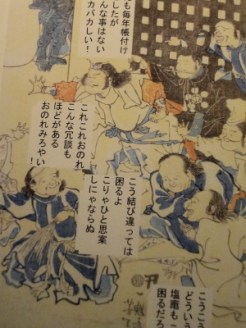 も毎年帳付け
したが
んな事はない
カバカしい！
これこれおのれ
こんな冗談も
ほどがある
おのれみろやい！
こう結び違っては
困るよ
こりゃひと思案
しにゃならぬ
こうこう
どういう
塩風も
困るだろ